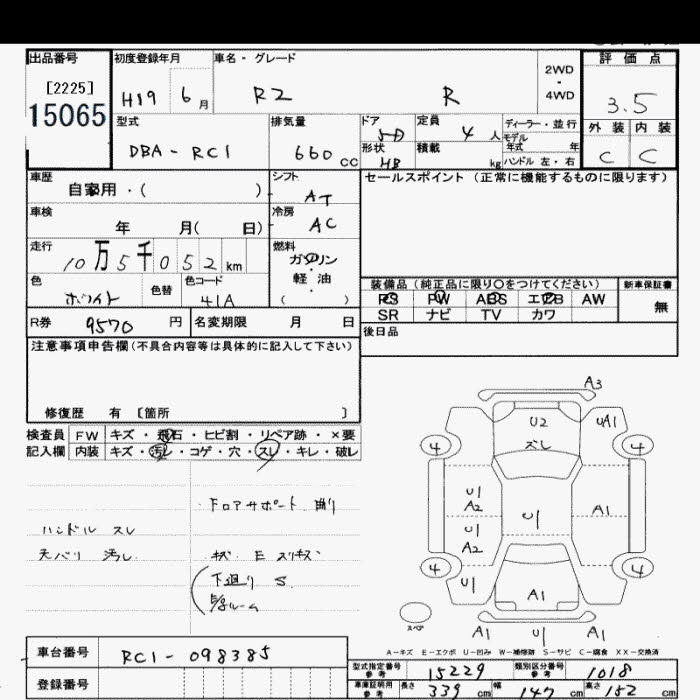 出品番号
[2225]
15065
初度登録年月
H19 6月
車名・グレード
R2 R
2WD
・
4WD
評価点
3.5
外装 内装
C C
型式
DBA-RC1
排気量
660 cc
ドア
5D
形状
HB
定員
4人
積載
kg
ディーラー・並行
モデル
年式 年
ハンドル 左・右
車歴
自家用・( )
シフト
AT
セールスポイント(正常に機能するものに限ります)
車検
年 月( 日)
冷房
AC
走行
10万5千052km
燃料
ガソリン
軽油
( )
色
ホワイト
色替
色コード
41A
装備品(純正品に限り〇をつけてください)
PS PW ABS エアB AW
SR ナビ TV カワ
新車保証書
無
R券 9570 円
名変期限 月 日
後日品
注意事項申告欄(不具合内容等は具体的に記入して下さい)
修復歴 有 [箇所 ]
検査員
記入欄
FW キズ・飛石・ヒビ割・リペア跡・×要
内装 キズ・汚レ・コゲ・穴・スレ・キレ・破レ
ドアサポート 曲り
ハンドル スレ
天バリ 汚レ
下廻り S
A3
U2
ズレ
UA1
4
4
U1
A2
U1
A2
U1
A1
4
4
U1
A1
スペア
A1
U1
A1
A-キズ E-エクボ U-凹み W-補修跡 S-サビ C-腐食 XX-交換済
車台番号
RC1-098385
登録番号
型式指定番号
参考
15229
類別区分番号
参考
1018
車庫証明用
参考
長さ 339 cm
幅 147 cm
高さ 152 cm